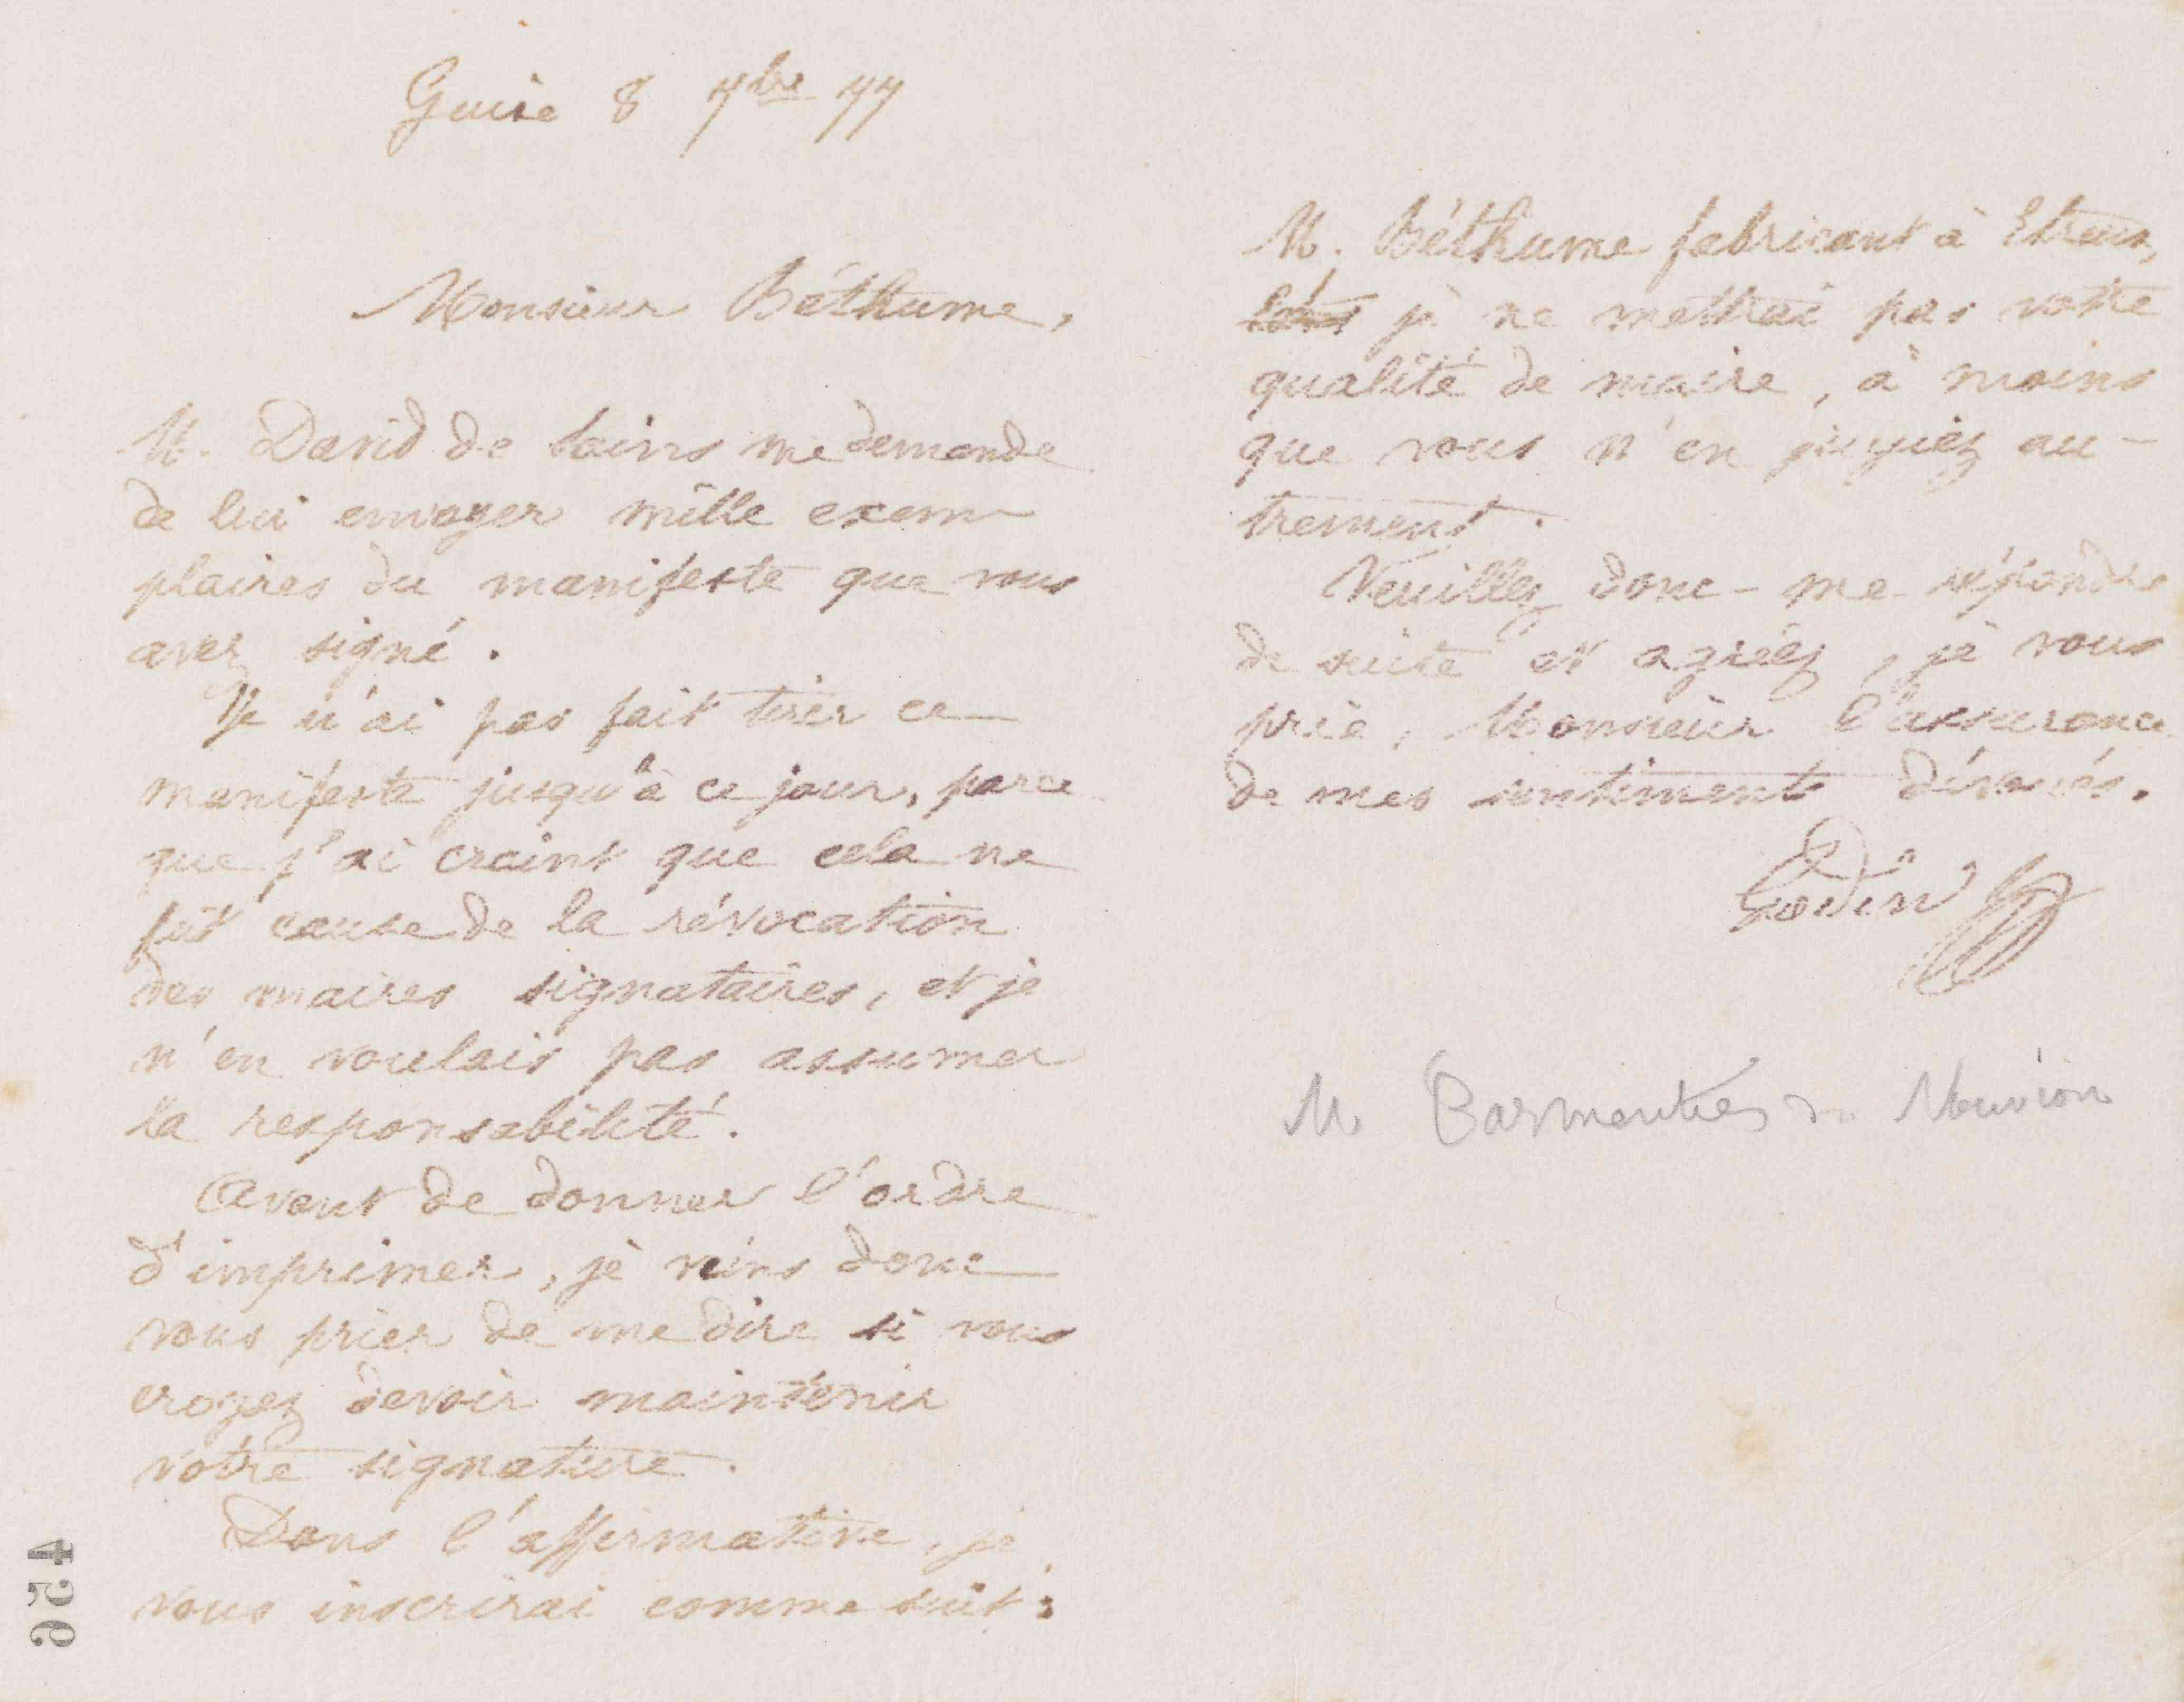 Guise 8 7bre 77
Monsieur Béthume,
M. David de Sains me demande
de lui envoyer mille exem-
plaires du manifeste que vous
avez signé.
Je n'ai pas fait tirer ce
manifeste jusqu'à ce jour, parce
que j'ai craint que cela ne
fût cause de la révocation
des maires signataires, et je
n'en voulais pas assumer
la responsabilité.
Avant de donner l'ordre
d'imprimer, je viens donc
vous prier de me dire si vous
croyez devoir maintenir
votre signature.
Dans l'affirmative, je
vous inscrirai comme suit :
456
M. Béthume fabricant à Etreux,
je ne mettrai pas votre
qualité de maire, à moins
que vous n'en jugiez au-
trement.
Veuillez donc me répondre
de suite et agréez, je vous
prie, Monsieur l'assurance
de mes sentiments dévoués.
Godin
M Parmentier du Nouvion